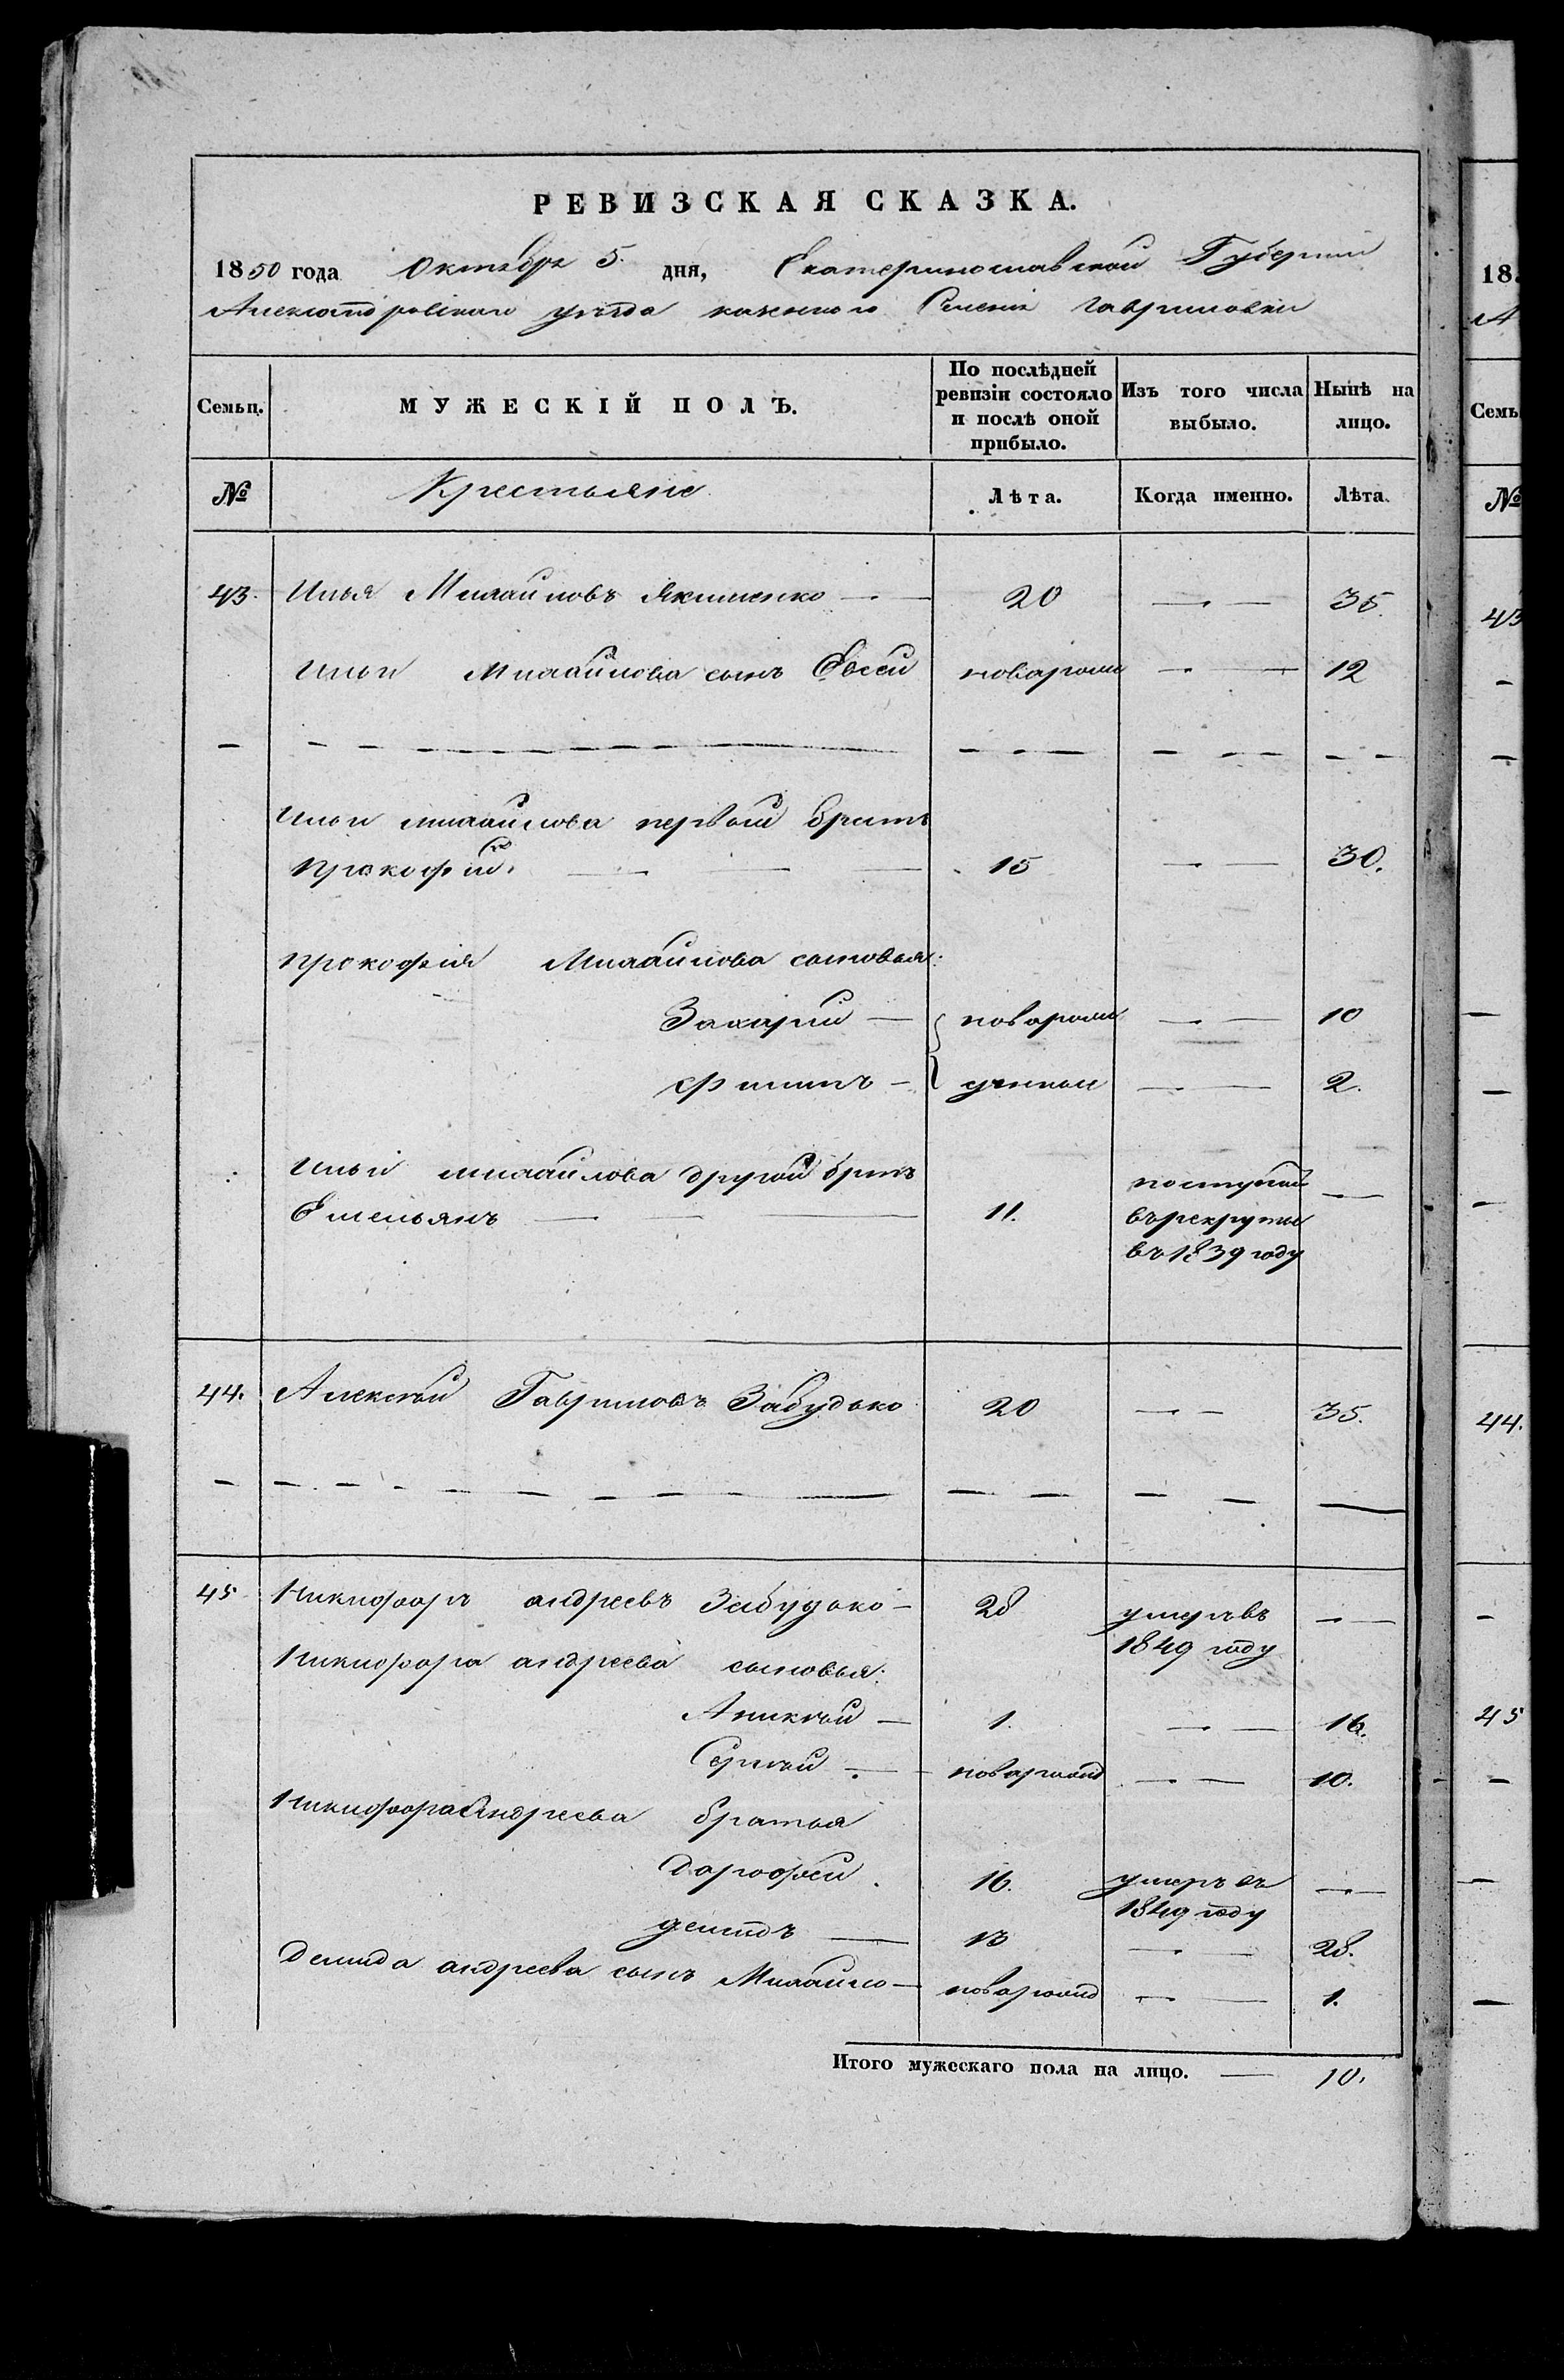 РЕВИЗСКАЯ СКАЗКА.
1850 года Октября 5. дня, Екатеринославской Губернии
Александровскаго уезда казеннаго Селения Гавриловки
Семьи. МУЖЕСКІЙ ПОЛЪ. По послѣдней ревизіи состояло и послѣ оной прибыло. Изъ того числа выбыло. Нынѣ на лицо.
№ Крестьяне Лѣта. Когда именно. Лѣта.
43. Илья Михайловъ Якименко — 20 — 35.
Ильи Михайлова сынъ Евсей новорожд — 12
Ильи михайлова первый братъ
Прокофий. — 15 — 30.
Прокофия Михайлова сыновья:
Захарий — новорожд — 10
Филипъ — — 2.
Ильи михайлова другой братъ
Емельянъ — 11. поступил —
въ рекруты
въ 1839 году
44. Алексѣй Гавриловъ Забудько 20 — 35.
45 Никифоръ андреевъ Забудько — 28 умеръ въ —
1849 году
Никифора андреева сыновья:
Аникѣй — 1. — 16.
Сергѣй — новорожд — 10.
Никифора Андреева братья
Дорофей 16. умеръ въ —
1849 году
Демидъ — 13 — 28.
Демида андреева сынъ Михайло — новорожд — 1.
Итого мужескаго пола на лицо. — 10.
18
А
Семь
№
43
44.
45